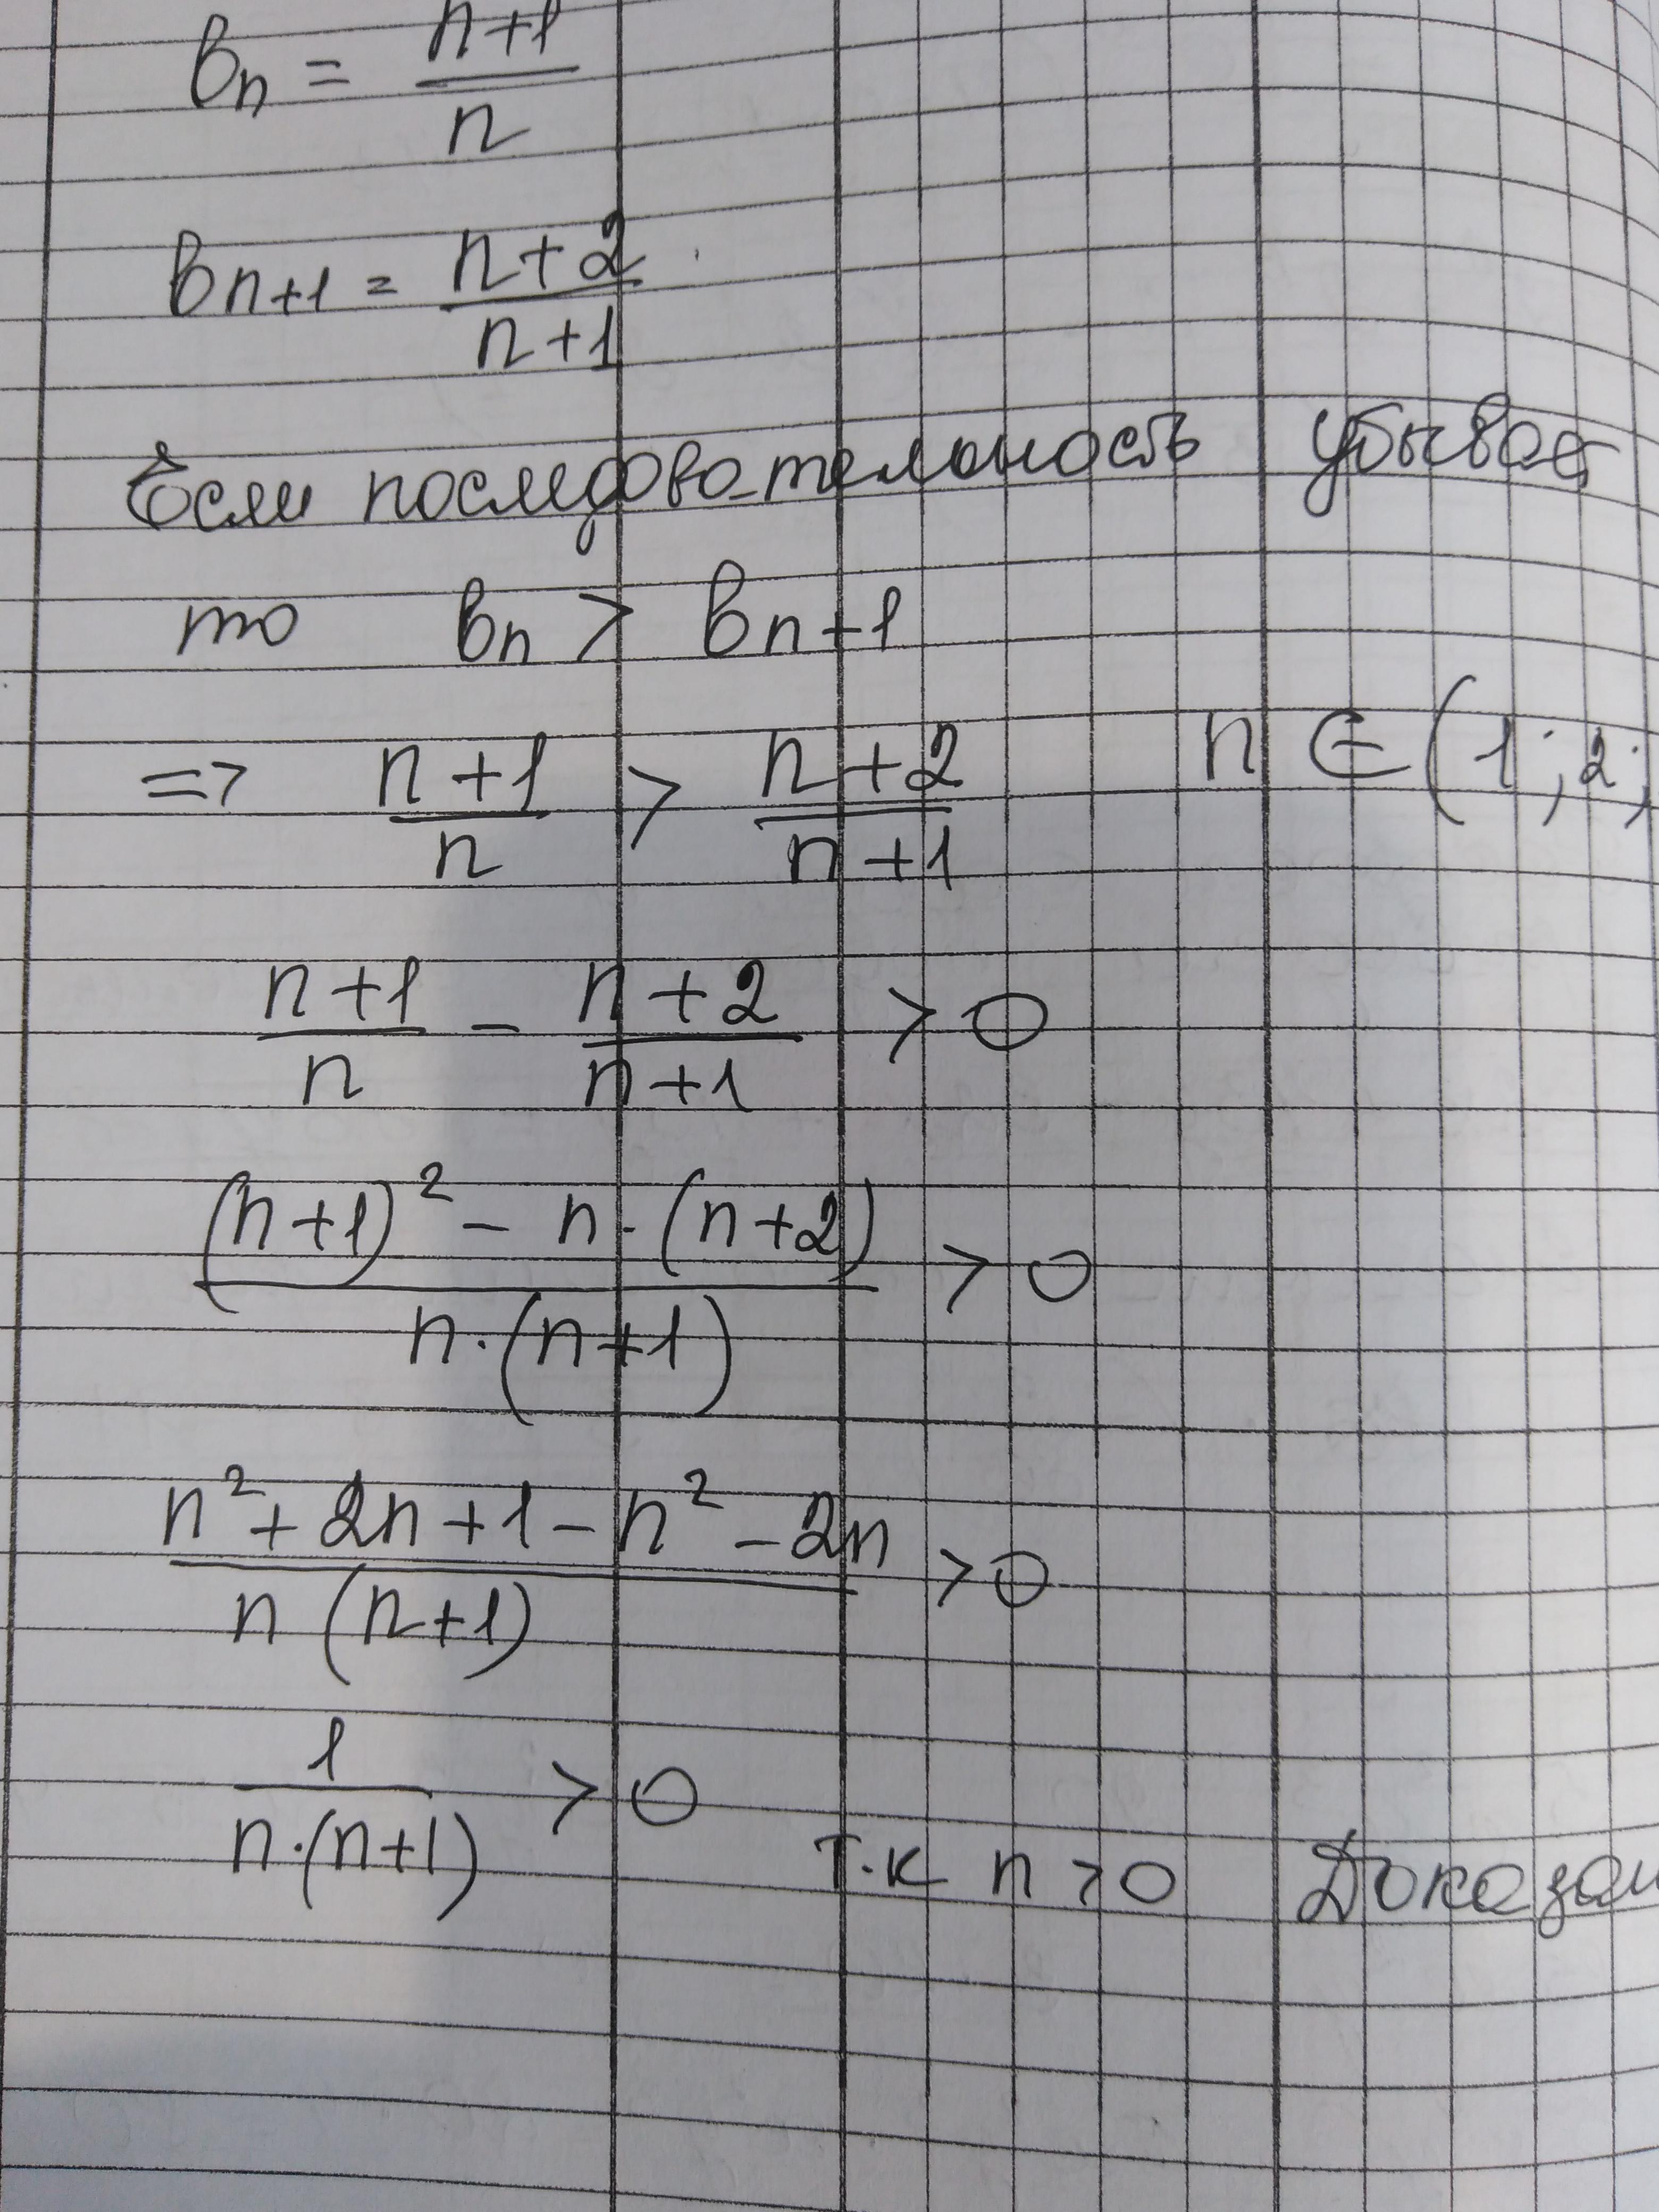 вn = n+1/n
вn+1 = n+2/n+1
Если последовательность убывает
то вn > вn+1
=> n+1/n > n+2/n+1 n ∈ (1; 2;
n+1/n - n+2/n+1 > 0
(n+1)² - n·(n+2)/n·(n+1) > 0
n² + 2n + 1 - n² - 2n/n(n+1) > 0
1/n·(n+1) > 0 т.к n > 0 Доказан